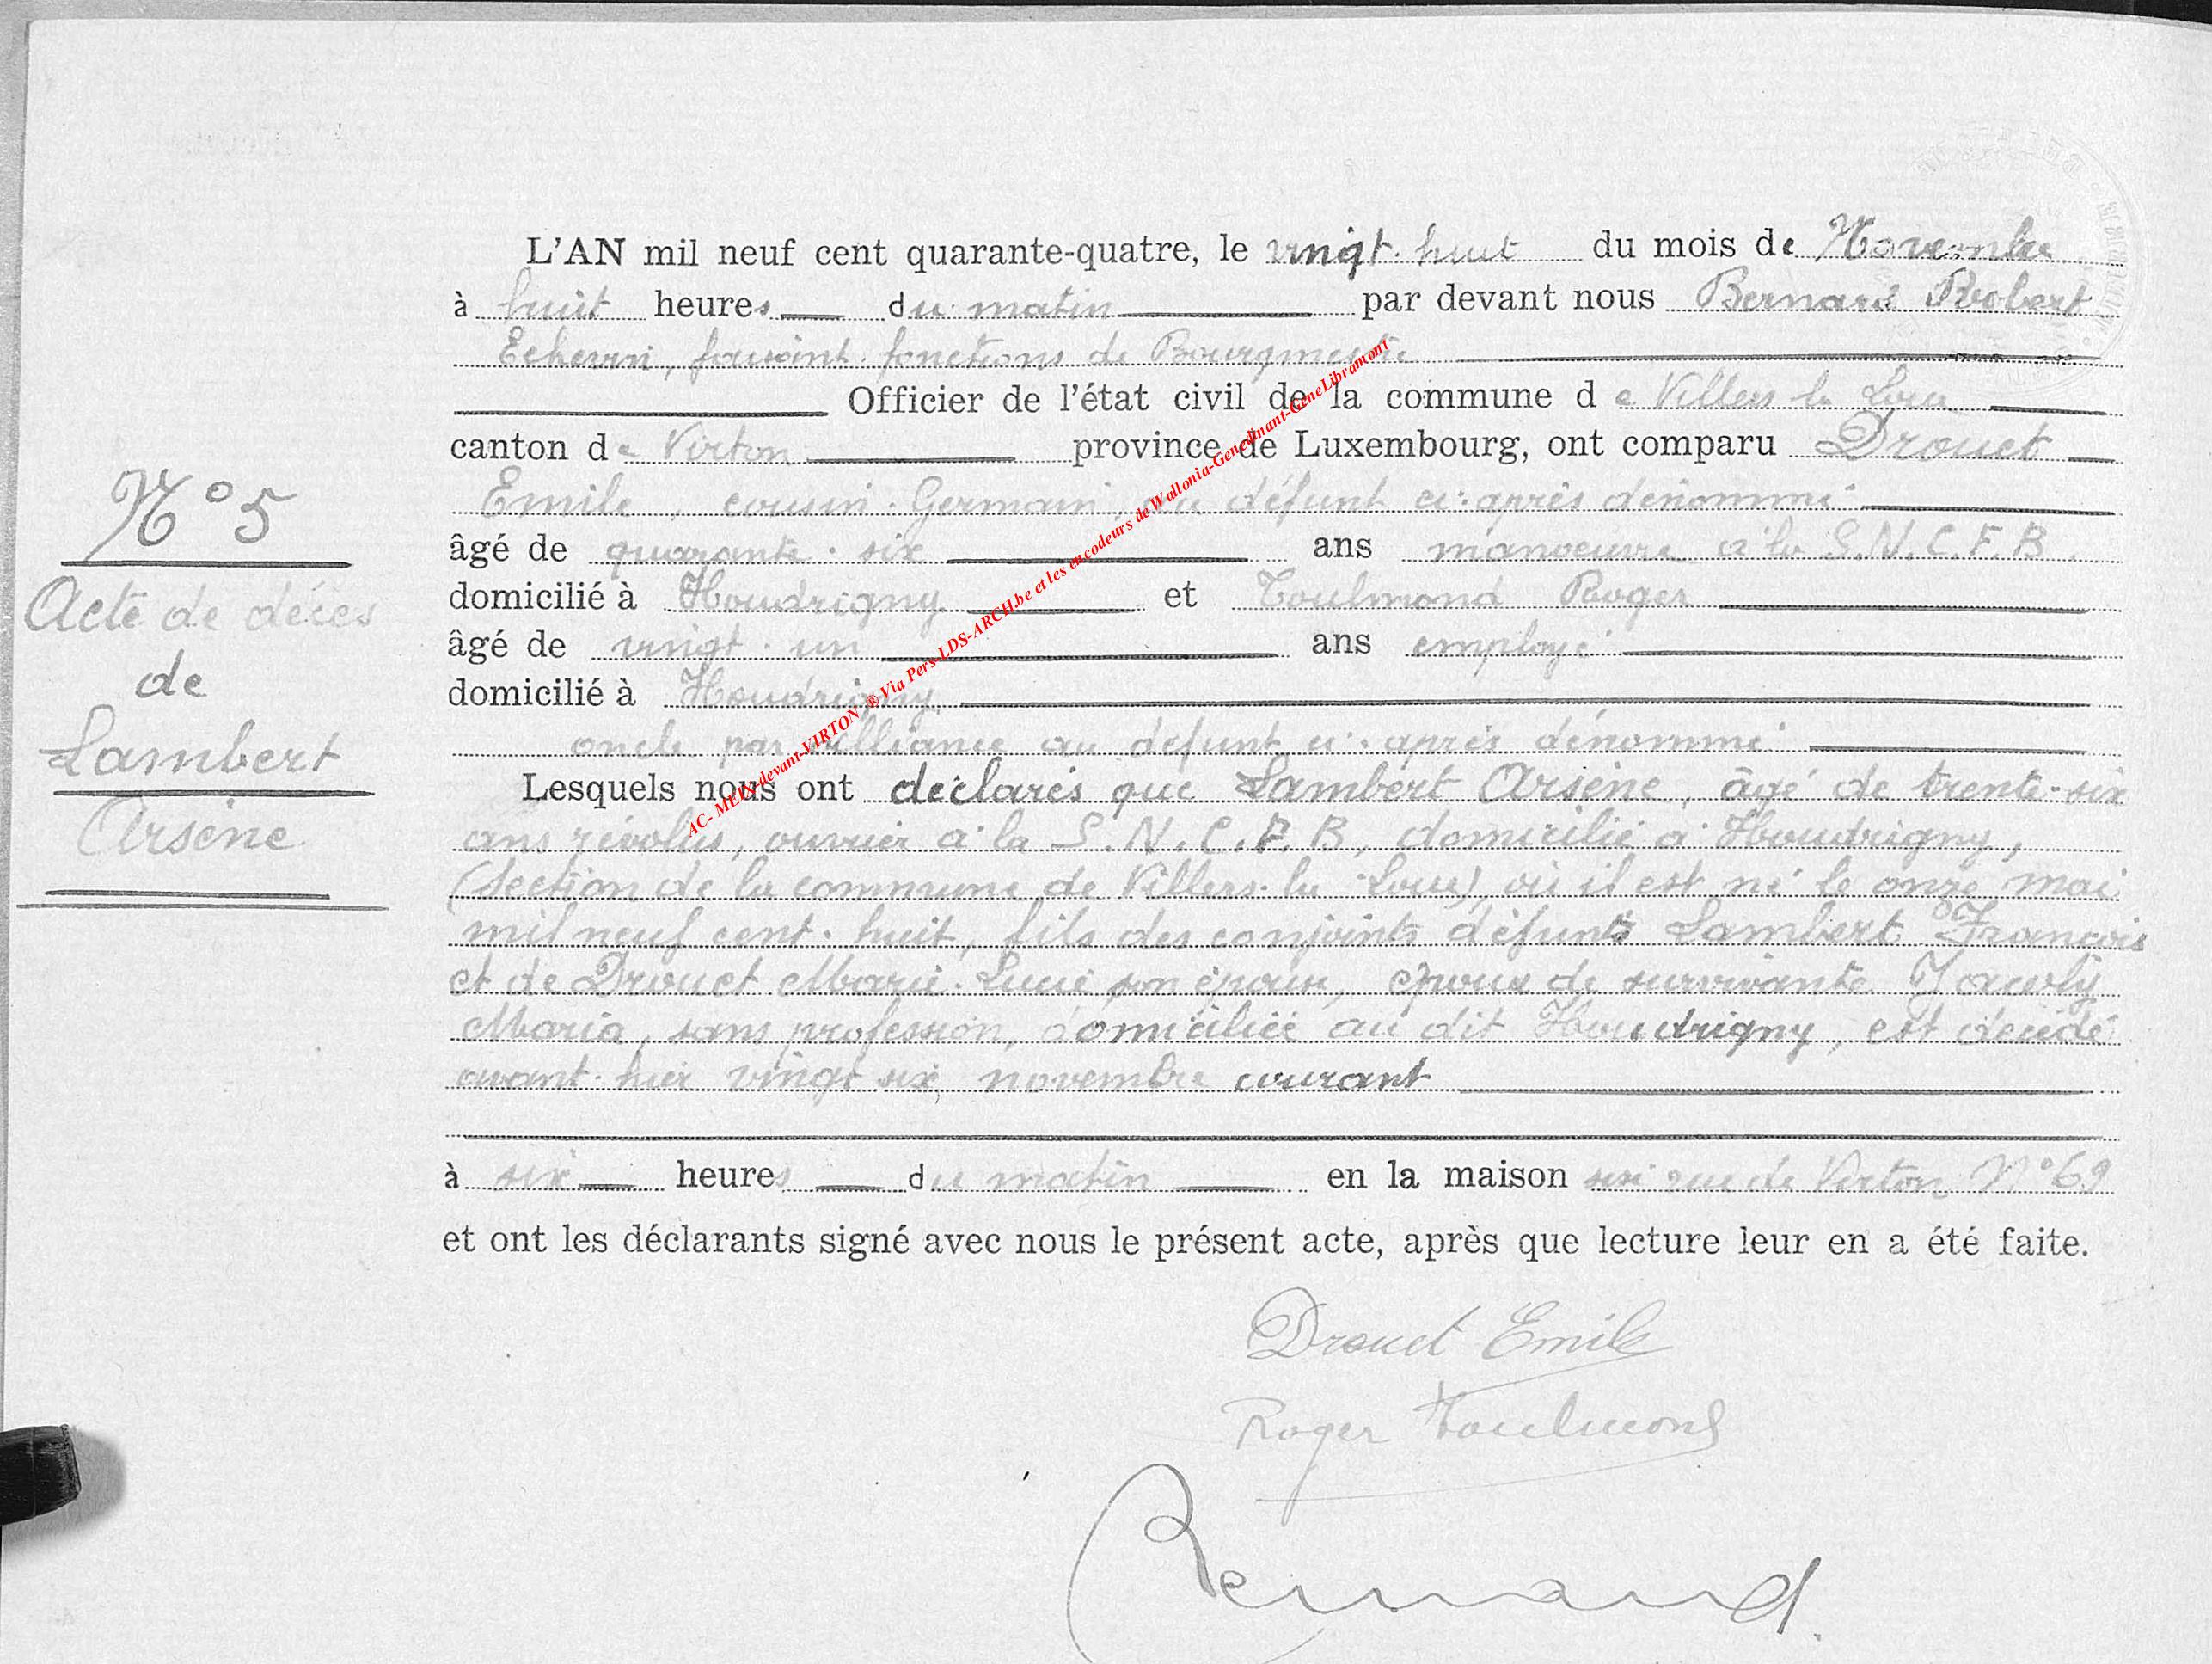 L'AN mil neuf cent quarante-quatre, le vingt-huit du mois de Novembre
à huit heures du matin par devant nous Bernard Robert
Echevin, faisant fonctions de Bourgmestre
Officier de l'état civil de la commune de Villers la Loue
canton de Virton province de Luxembourg, ont comparu Drouet
Emile, cousin-Germain, au défunt ci-après dénommé
âgé de quarante-six ans manoeuvre à la S.N.C.F.B.
domicilié à Houdrigny et Toulmond Roger
âgé de vingt-un ans employé
domicilié à Houdrigny
oncle par alliance au défunt ci-après dénommé
N° 5
Acte de décès
de
Lambert
Arsène
Lesquels nous ont déclarés que Lambert Arsène, âgé de trente-six
ans révolus, ouvrier à la S.N.C.F.B, domicilié à Houdrigny,
(section de la commune de Villers-la-Loue) où il est né le onze mai
mil neuf cent-huit, fils des conjoints défunts Lambert François
et de Drouet Marie-Lucie son épouse, époux de survivante
Maria, sans profession, domiciliée au dit Houdrigny, est décédé
avant-hier vingt six, novembre courant
à six heures du matin en la maison sise rue de Virton N° 69
et ont les déclarants signé avec nous le présent acte, après que lecture leur en a été faite.
Drouet Emile
Roger Toulmond
Bernard
AC- MEIX-devant-VIRTON ® Via Pers-LDS-ARCH.be et les encodeurs de Wallonia-Genedinant-GeneLibramont